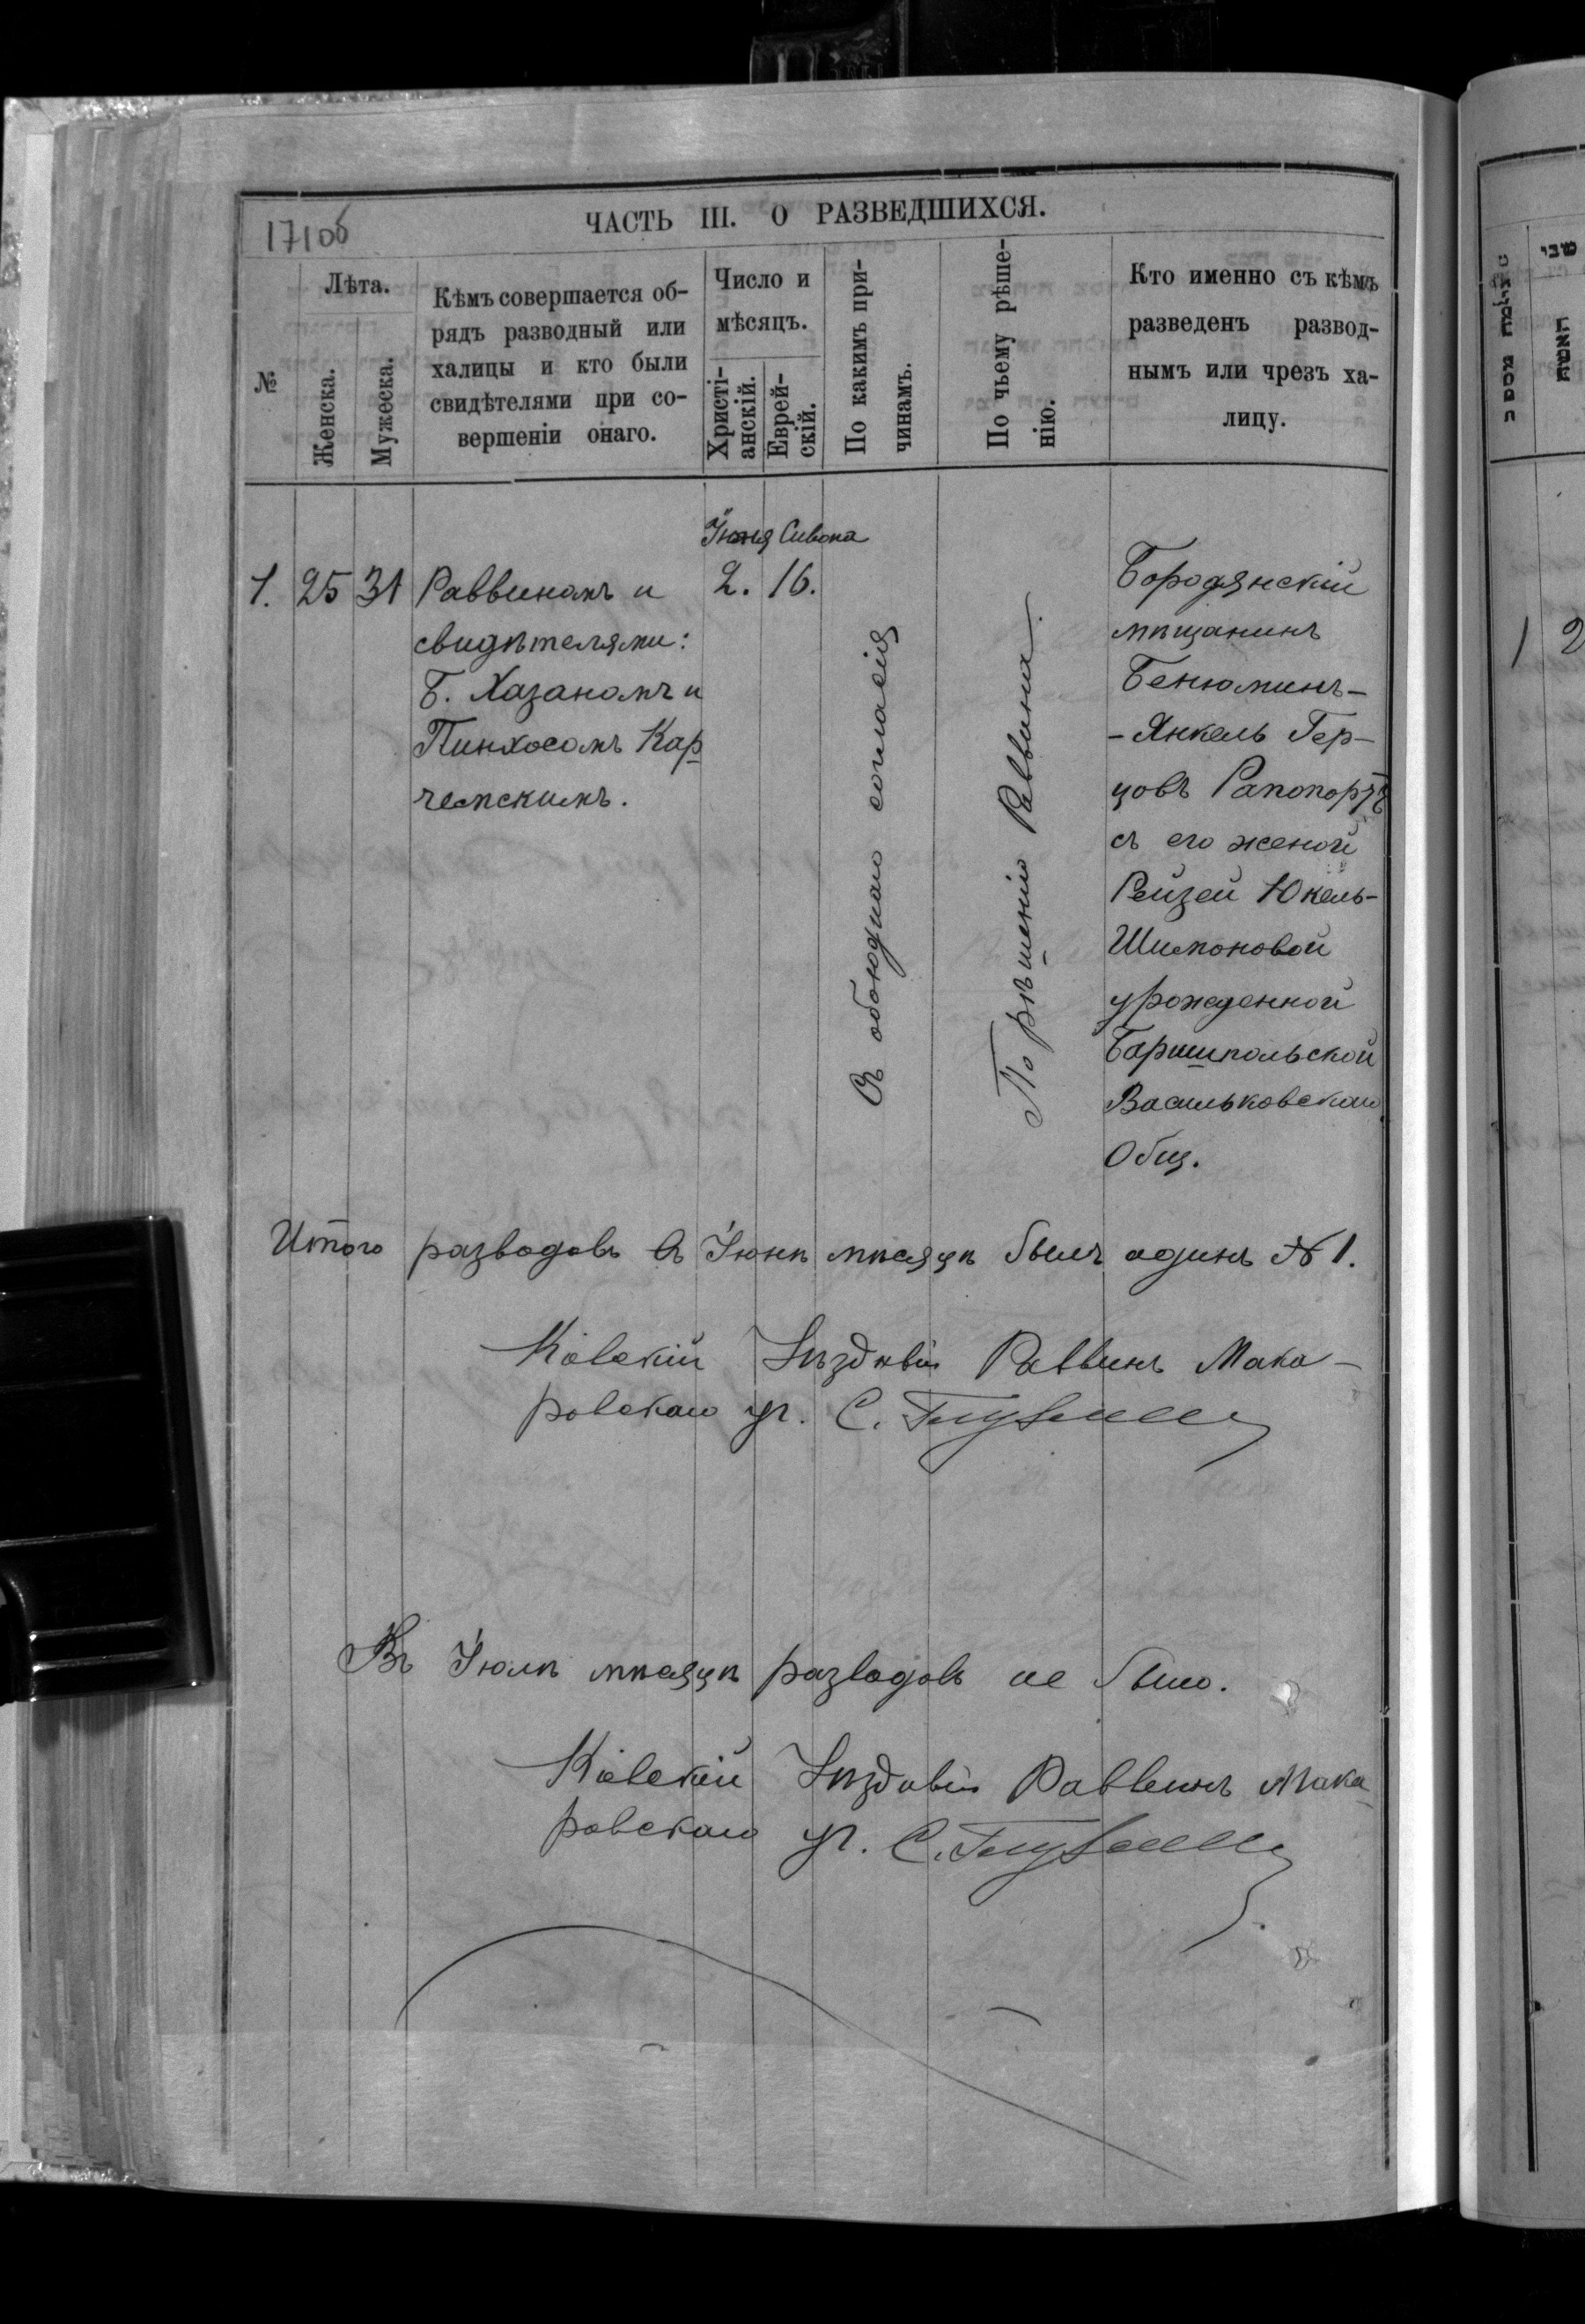 171об
ЧАСТЬ III. О РАЗВЕДШИХСЯ.
№
Лѣта.
Женска.
Мужеска.
Кѣмъ совершается об-
рядъ разводный или
халицы и кто были
свидѣтелями при со-
вершеніи онаго.
Число и
мѣсяцъ.
Христі-
анскій.
Еврей-
скій.
По какимъ при-
чинамъ.
По чьему рѣше-
нію.
Кто именно съ кѣмъ
разведенъ развод-
нымъ или чрезъ ха-
лицу.
Іюня Сивона
1. 25 31 Раввиномъ и 2. 16.
свидѣтелями:
Б. Хазаномъ и
Пинхосомъ Кар
чемскимъ.
Съ обоюднаго согласія
По рѣшенію Раввина.
Бородянскій
мѣщанинъ
Бенюминъ-
-Янкель Гер-
цовъ Рапопортъ
съ его женой
Рейзей Юкель-
Шимоновой
урожденной
Баришпольской
Васильковскаго
Общ.
Итого разводовъ въ Іюнѣ мѣсяцѣ былъ одинъ № 1.
Кіевскій Уѣздный Раввинъ Мака-
ровскаго уч. С.
Въ Іюлѣ мѣсяцѣ разводовъ не было.
Кіевскій Уѣздный Раввинъ Мака
ровскаго уч. С.
שבי
האשה
1 2